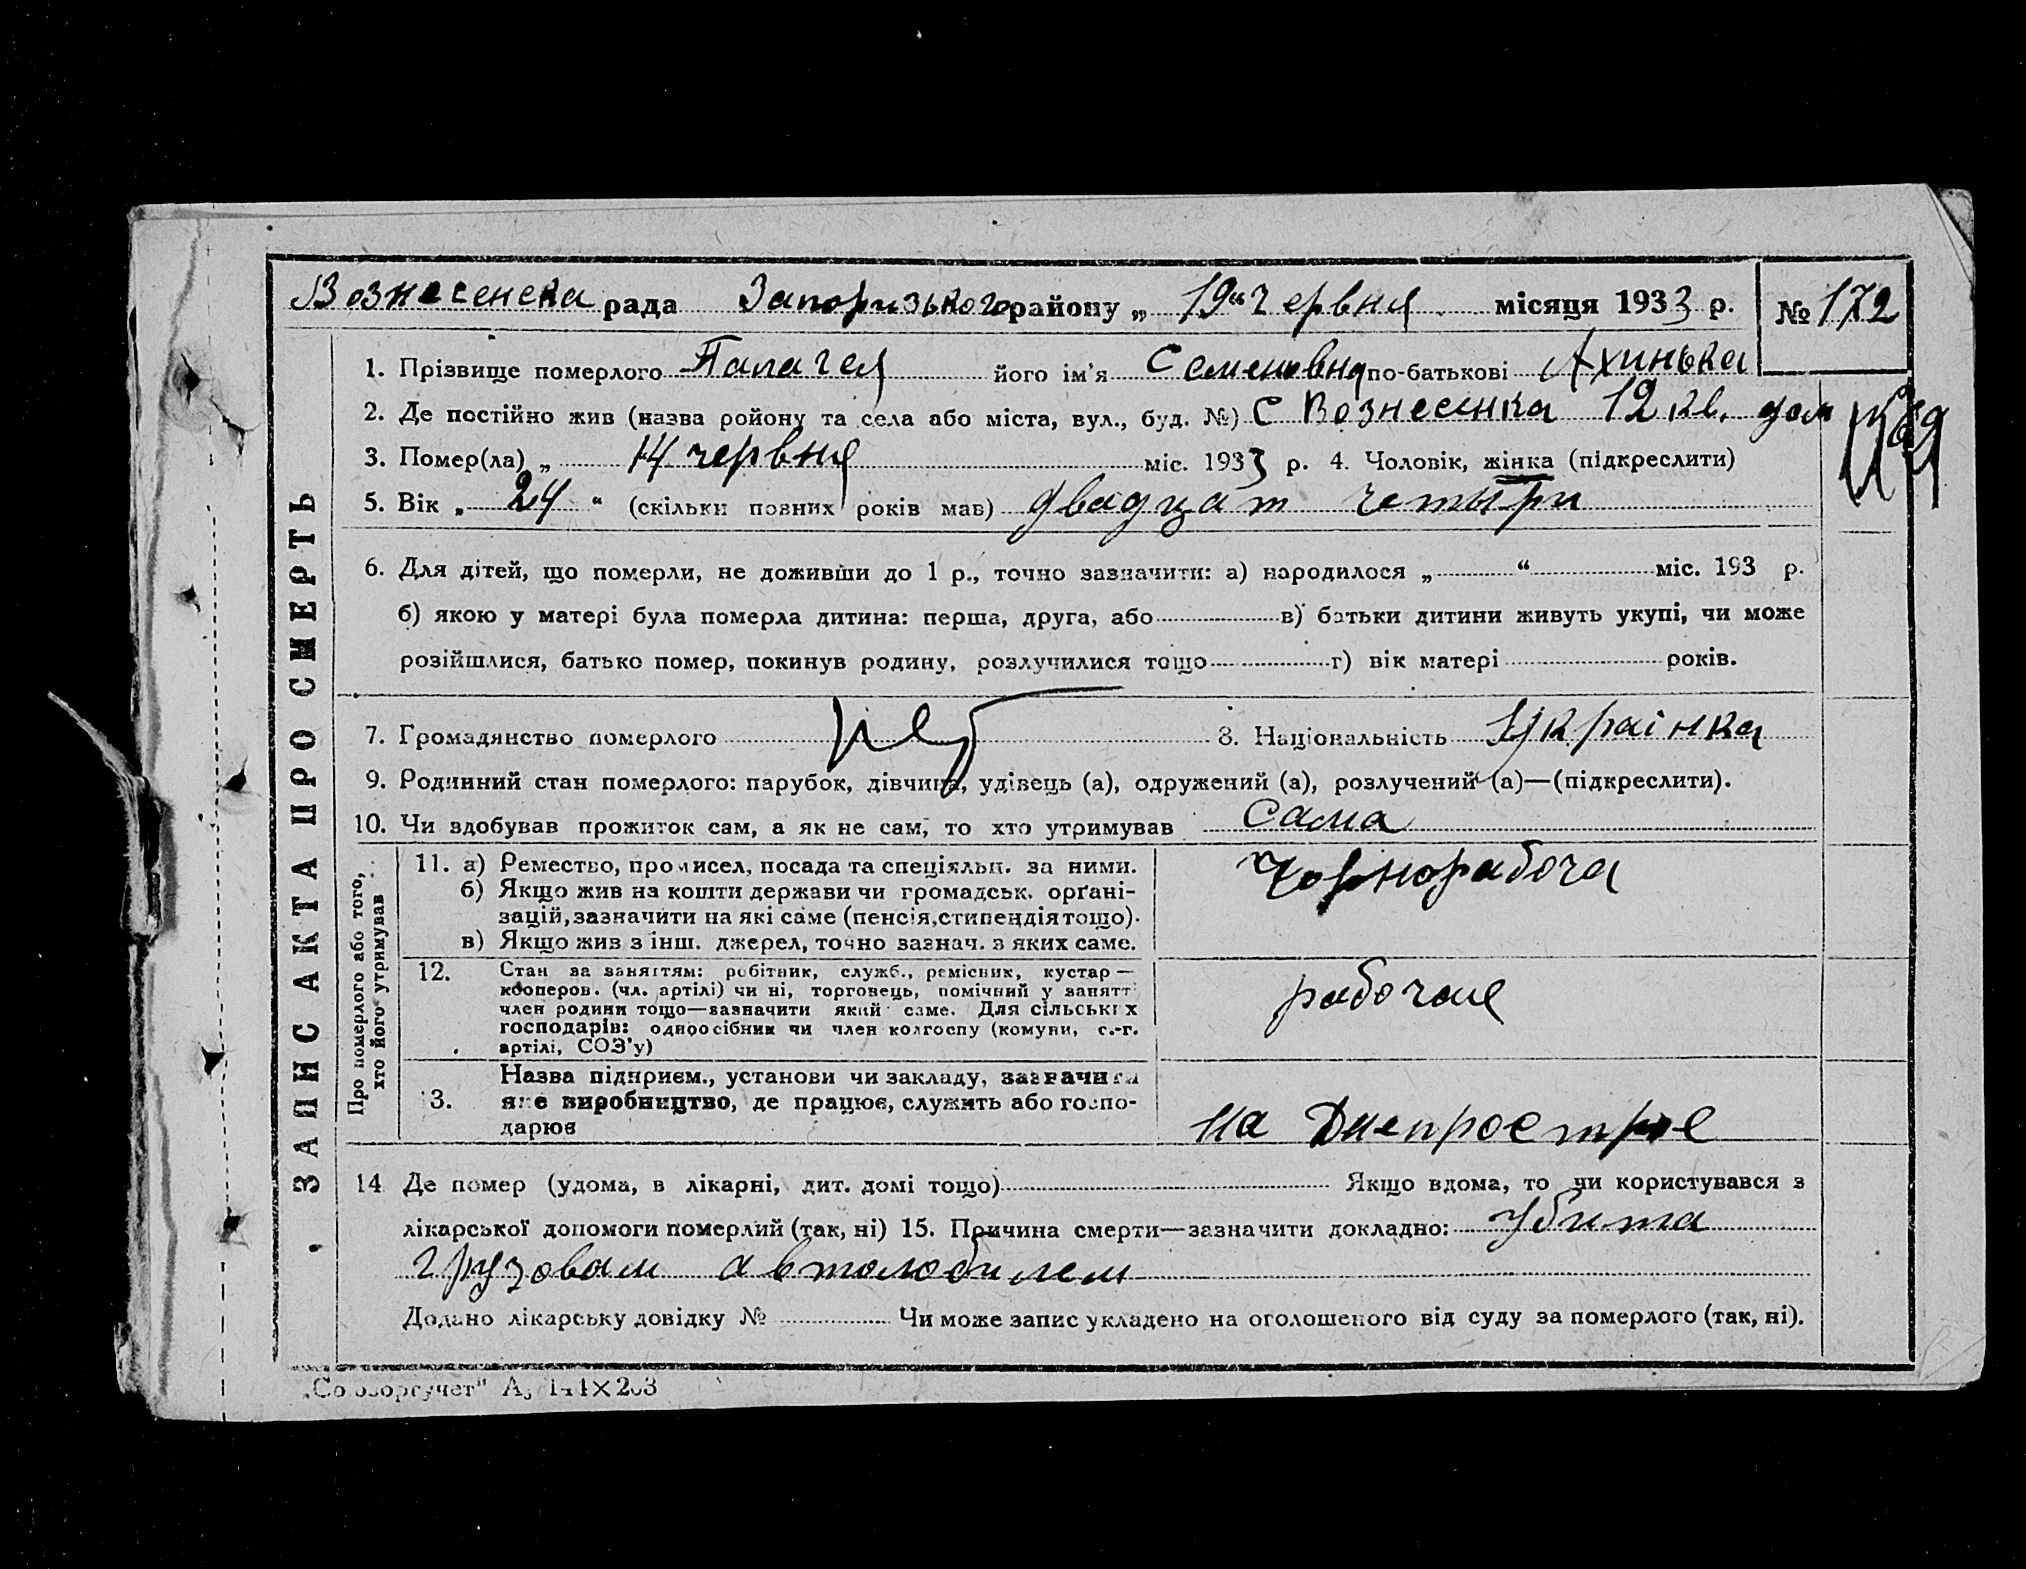 Вознесенска рада Запоризького району „ 19 “ червня місяця 1933 р. № 172
1. Прізвище померлого Палагея його ім’я Семеновна по-батькові Ахинька
2. Де постійно жив (назва ройону та села або міста, вул., буд. №) С Вознесенка 12 кв. дом
3. Помер(ла) „ 14 червня міс. 1933 р. 4. Чоловік, жінка (підкреслити)
5. Вік „ 24 “ (скільки повних років мав) двадцат четыри
6. Для дітей, що померли, не доживши до 1 р., точно зазначити: а) народилося „ “ міс. 193 р.
б) якою у матері була померла дитина: перша, друга, або в) батьки дитини живуть укупі, чи може
розійшлися, батько помер, покинув родину, розлучилися тощо г) вік матері років.
7. Громадянство померлого 8. Національність Українка
9. Родинний стан померлого: парубок, дівчина, удівець (а), одружений (а), розлучений (а)—(підкреслити).
10. Чи здобував прожиток сам, а як не сам, то хто утримував сама
11. а) Ремество, промисел, посада та спеціяльн. за ними. Чорнорабоча
б) Якщо жив на кошти держави чи громадськ. орґані-
зацій, зазначити на які саме (пенсія, стипендія тощо).
в) Якщо жив з інш. джерел, точно зазнач. з яких саме.
12. Стан за заняттям: робітник, служб., ремісник, кустар—
кооперов. (чл. артілі) чи ні, торговець, помічний у занятті
член родини тощо—зазначити який саме. Для сільських
господарів: одноосібник чи член колгоспу (комуни, с.-г.
артілі, СОЗ’у)
рабочая
Назва підприєм., установи чи закладу, зазначити
13. яке виробництво, де працює, служить або госпо-
дарює
на Днепрострое
Про померлого або того,
хто його утримував
ЗАПИС АКТА ПРО СМЕРТЬ
14 Де помер (удома, в лікарні, дит. домі тощо) Якщо вдома, то чи користувався з
лікарської допомоги померлий (так, ні) 15. Причина смерти—зазначити докладно: убита
грузовам автомобилем
Додано лікарську довідку № Чи може запис укладено на оголошеного від суду за померлого (так, ні).